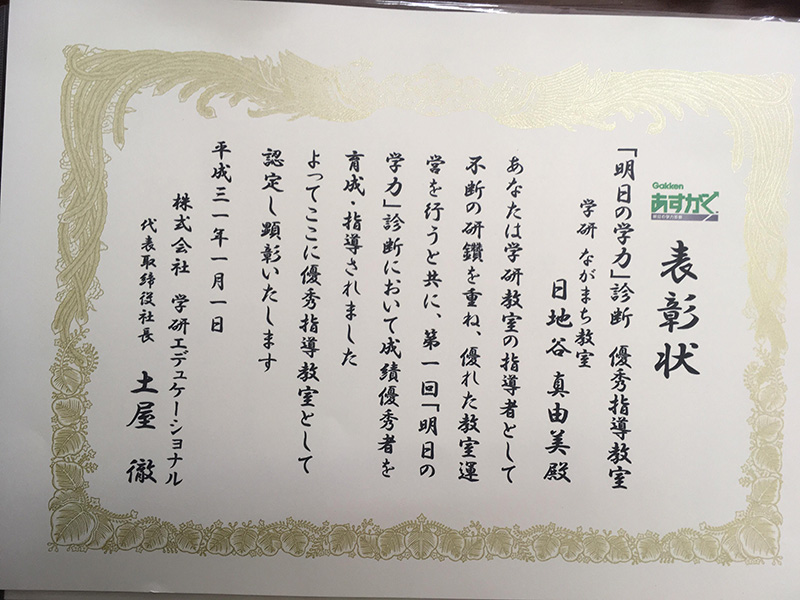 Gakken
あすがく
表彰状
「明日の学力」診断 優秀指導教室
学研 ながまち教室
日地谷 真由美 殿
あなたは学研教室の指導者として
不断の研鑽を重ね、優れた教室運
営を行うと共に、第一回「明日の
学力」診断において成績優秀者を
育成・指導されました
よってここに優秀指導教室として
認定し顕彰いたします
平成三一年一月一日
株式会社 学研エデュケーショナル
代表取締役社長 土屋 徹